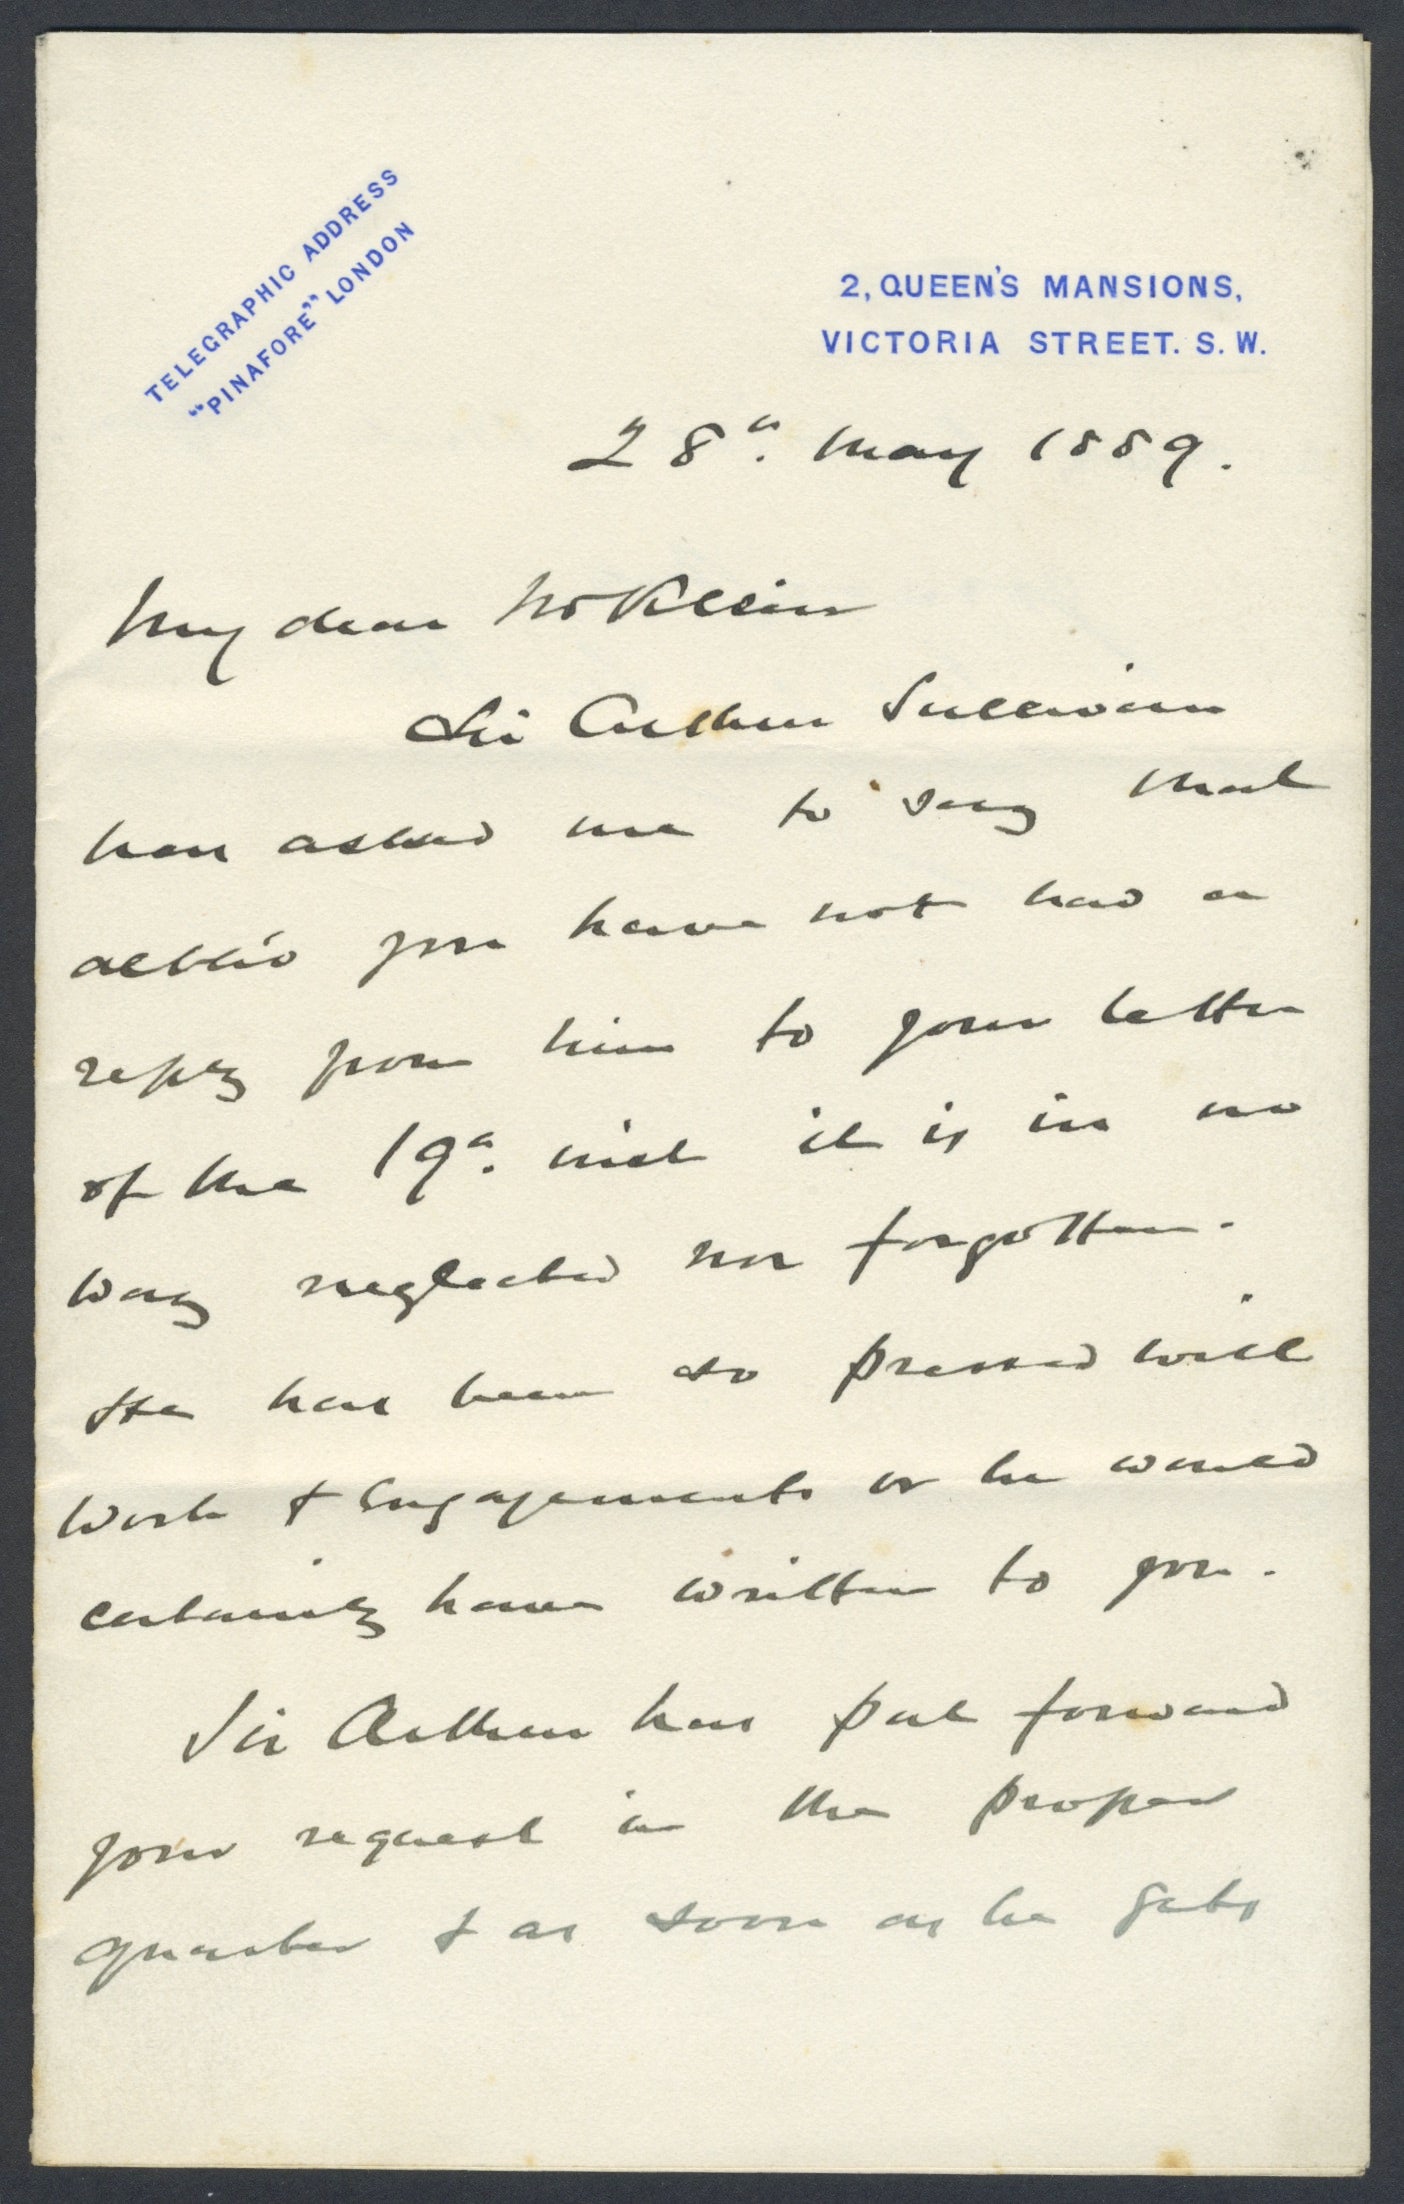 TELEGRAPHIC ADDRESS
"PINAFORE" LONDON
2, QUEEN'S MANSIONS,
VICTORIA STREET. S. W.
28th. May 1889.
My dear Mr Klein
Sir Arthur Sullivan
has asked me to say that
altho' you have not had a
reply from him to your letter
of the 19th. inst it is in no
way neglected nor forgotten.
He has been so pressed with
work & engagements or he would
certainly have written to you.
Sir Arthur has put forward
your request in the proper
quarter & as soon as he gets